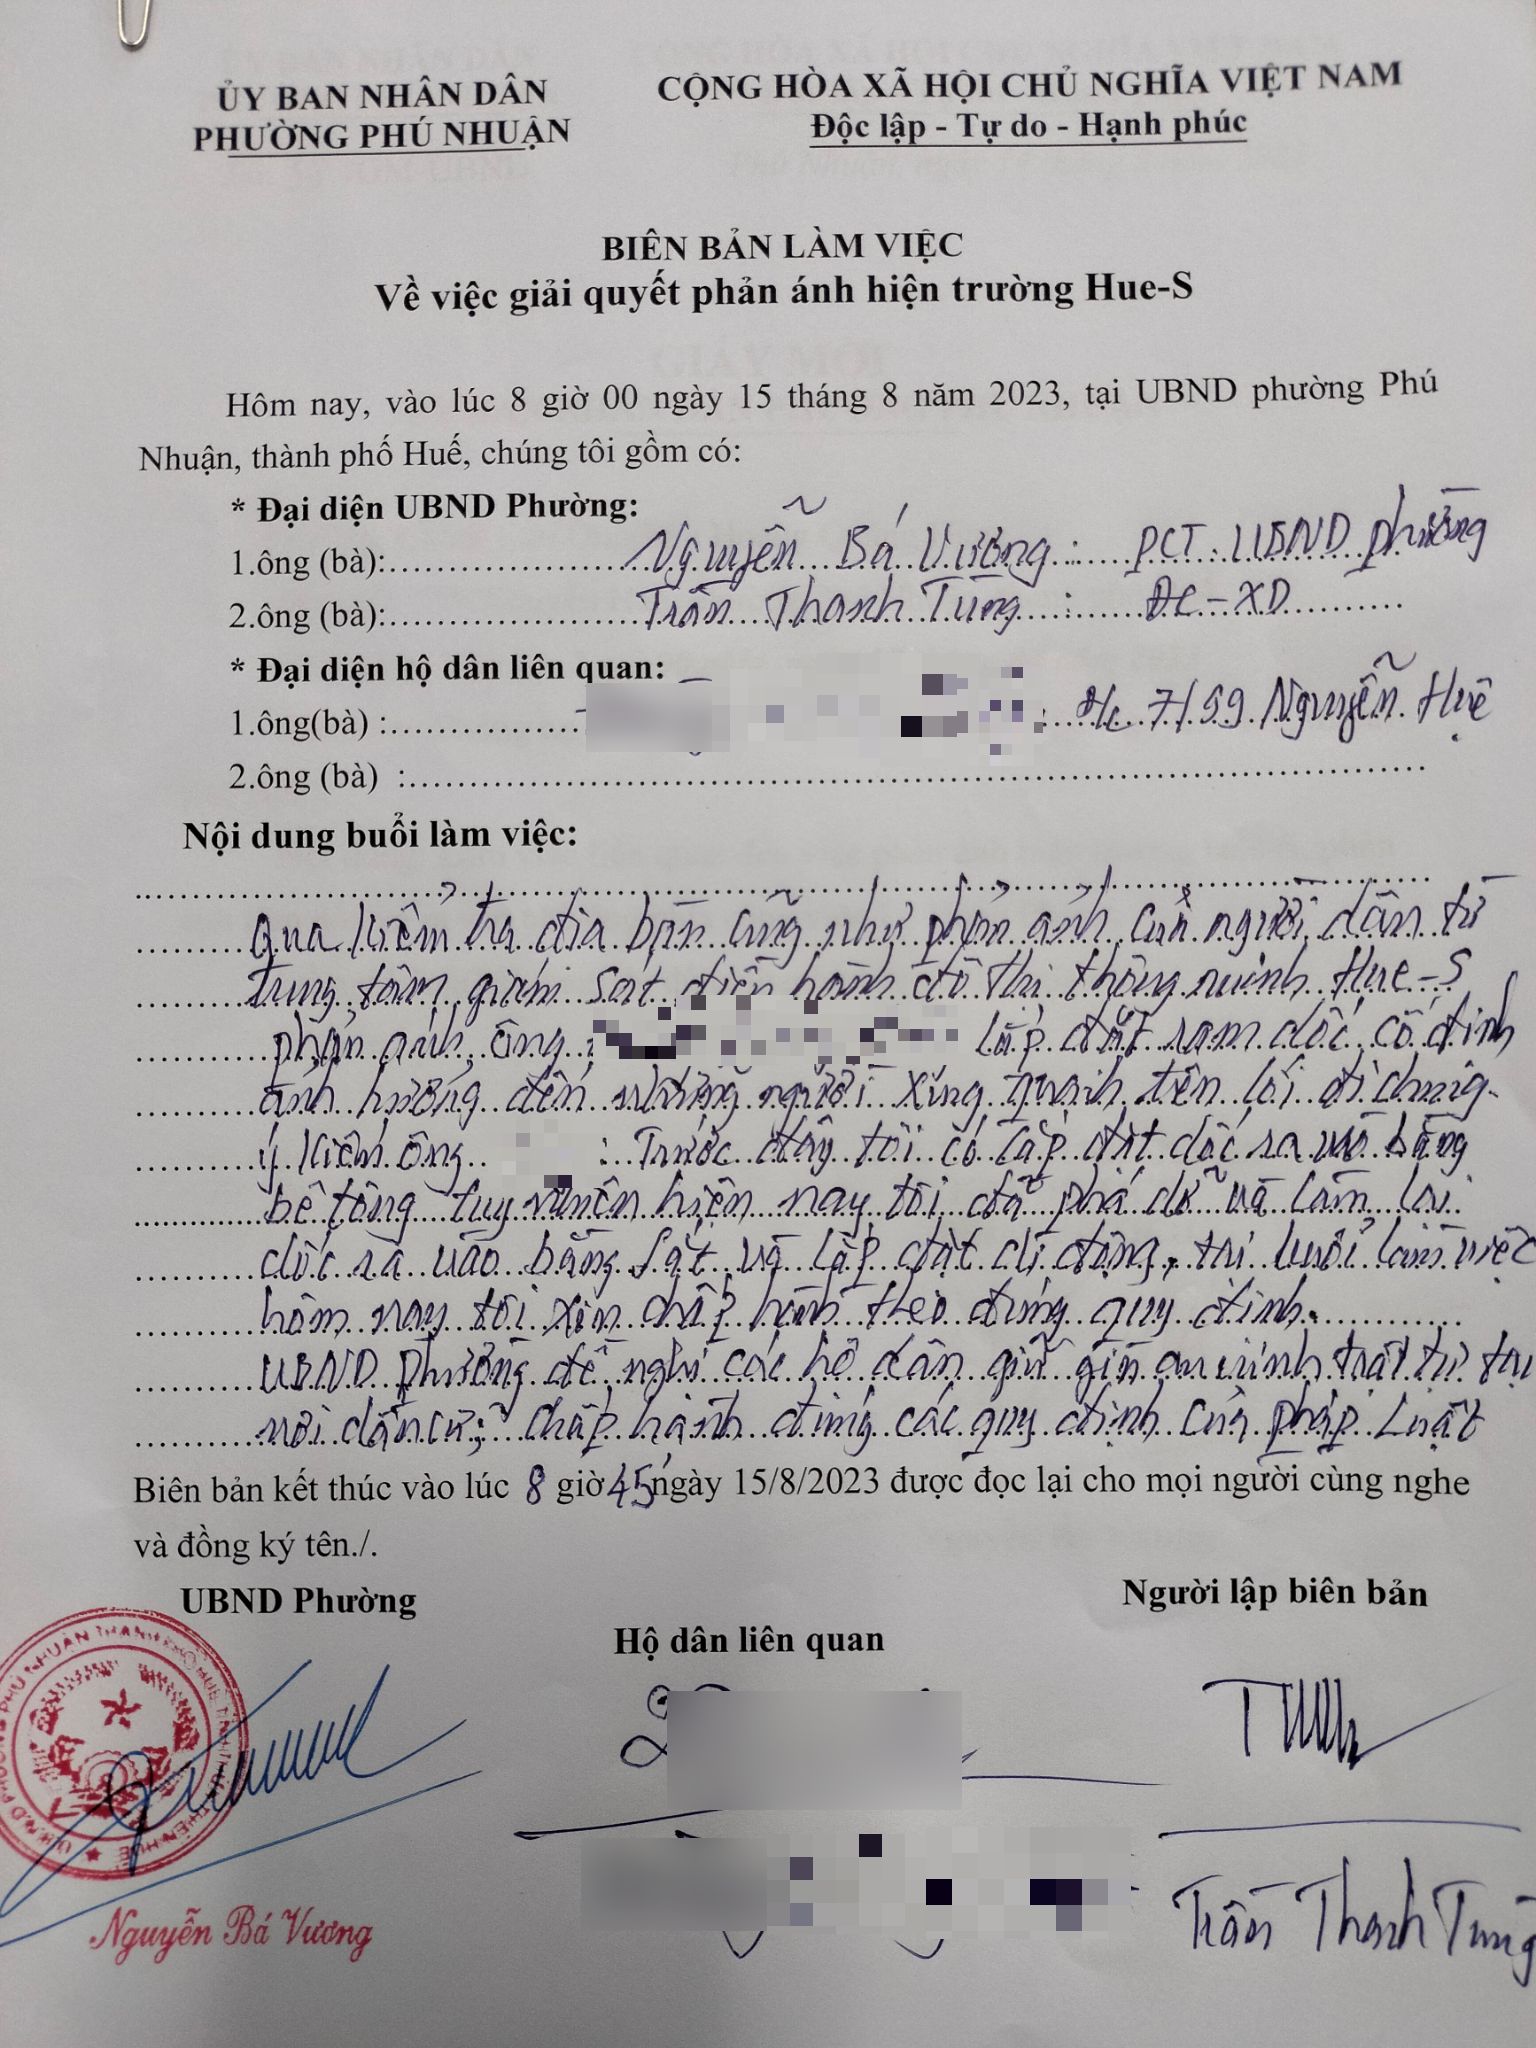 ỦY BAN NHÂN DÂN
PHƯỜNG PHÚ NHUẬN
CỘNG HÒA XÃ HỘI CHỦ NGHĨA VIỆT NAM
Độc lập - Tự do - Hạnh phúc
BIÊN BẢN LÀM VIỆC
Về việc giải quyết phản ánh hiện trường Hue-S
Hôm nay, vào lúc 8 giờ 00 ngày 15 tháng 8 năm 2023, tại UBND phường Phú
Nhuận, thành phố Huế, chúng tôi gồm có:
* Đại diện UBND Phường:
1.ông (bà): Nguyễn Bá Vương : PCT. UBND phường
2.ông (bà): Trần Thanh Tùng : ĐC-XD
* Đại diện hộ dân liên quan:
1.ông(bà) : : đ/c 7/59 Nguyễn Huệ
2.ông (bà) :
Nội dung buổi làm việc:
Qua kiểm tra địa bàn cũng như phản ánh của người dân từ
trung tâm giám sát điều hành đô thị thông minh Hue-S
phản ánh ông lắp đặt ram dốc cố định
ảnh hưởng đến những người xung quanh trên lối đi chung.
ý kiến ông : Trước đây tôi có lắp đặt dốc ra vào bằng
bê tông tuy nhiên hiện nay tôi đã phá dỡ và làm lại
dốc ra vào bằng sắt và lắp đặt di động, tại buổi làm việc
hôm nay tôi xin chấp hành theo đúng quy định.
UBND phường đề nghị các hộ dân giữ gìn an ninh trật tự tại
nơi dân cư; chấp hành đúng các quy định của pháp luật
Biên bản kết thúc vào lúc 8 giờ 45 ngày 15/8/2023 được đọc lại cho mọi người cùng nghe
và đồng ký tên./.
UBND Phường
Hộ dân liên quan
Người lập biên bản
Nguyễn Bá Vương
Trần Thanh Tùng